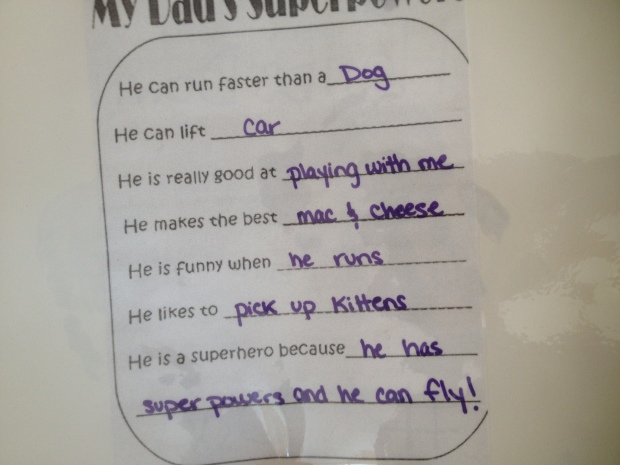 My Dad's Superpowers
He can run faster than a Dog
He can lift car
He is really good at playing with me
He makes the best mac & cheese
He is funny when he runs
He likes to pick up kittens
He is a superhero because he has
super powers and he can fly!